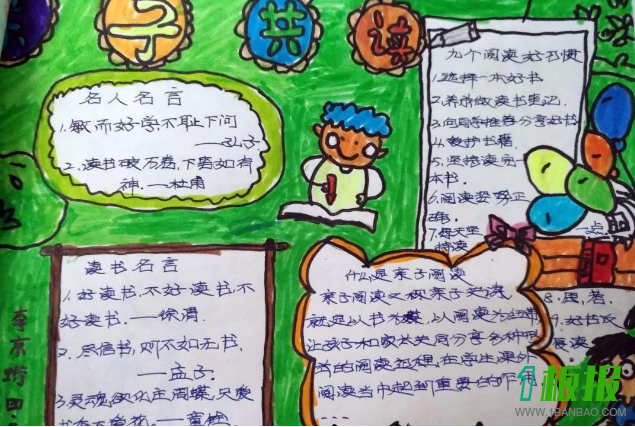 子共读
名人名言
1.敏而好学,不耻下问
——孔子
2.读书破万卷,下笔如有
神.——杜甫
九个阅读好习惯
1.选择一本好书
2.养成做读书笔记.
3.向同学推荐分享好书
4.爱护书籍
5.坚持读完一
本书.
6.阅读姿势正
确.
7.每天坚
持读
一点
8.思,考.
9.好书反
复读
读书名言
1.好读书,不好读书,不
好读书.——徐渭
2.尽信书,则不如无书.
——孟子
什么是亲子阅读
亲子阅读又称亲子共读,
就是以书为媒,以阅读为纽带
让孩子和家长共同分享多种形
式的阅读过程,在学生课外
阅读当中起到重要的作用.
1板报
WWW.1BANBAO.COM